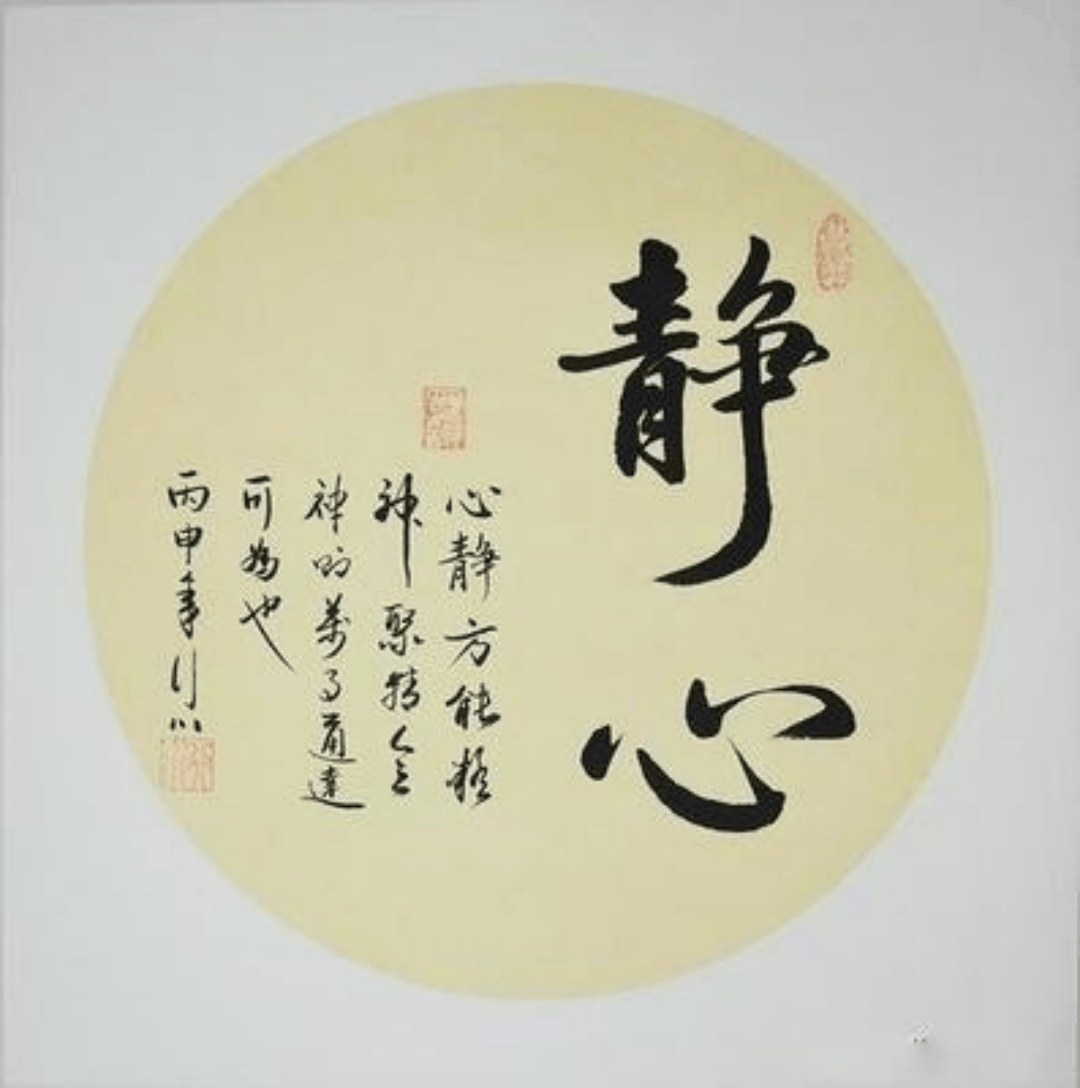 静心
心静方能凝
神聚精会
神明萬事通達
可為也
丙申年